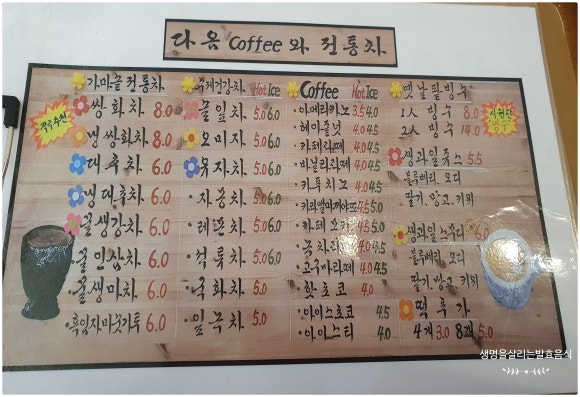 다옴 Coffee 와 전통차
가마솥 전통차
강력추천
쌍화차 8.0
냉쌍화차 8.0
대추차 6.0
냉대추차 6.0
꿀생강차 6.0
꿀인삼차 6.0
꿀생마차 6.0
·흑임자마눗가루 6.0
수제건강차 Hot Ice
꿀잎차 5.0 6.0
오미자 5.0 6.0
유자차 5.0 6.0
·자몽차 5.0 6.0
·레몬차 5.0 6.0
·석류차 5.0 6.0
·국화차 5.0
·잎녹차 5.0
Coffee Hot Ice
·아메리카노 3.5 4.0
·헤이즐넛 4.0 4.5
·카페라떼 4.0 4.5
·바닐라라떼 4.0 4.5
·카푸치노 4.0 4.5
·카라멜마끼아또 4.5 5.0
·카페모카 4.5 5.0
·녹차라떼 4.0 4.5
·고구마라떼 4.0 4.5
·핫초코 4.0
·아이스초코 4.5
·아이스티 4.0
옛날팥빙수
시원한
1人 빙수 8.0
2人 빙수 14.0
생과일쥬스 5.5
블루베리. 오디
딸기. 망고. 키위
생과일스무디 6.0
블루베리. 오디
딸기. 망고. 키위
떡추가
4개 3.0 8개 5.0
생명을살리는발효음식